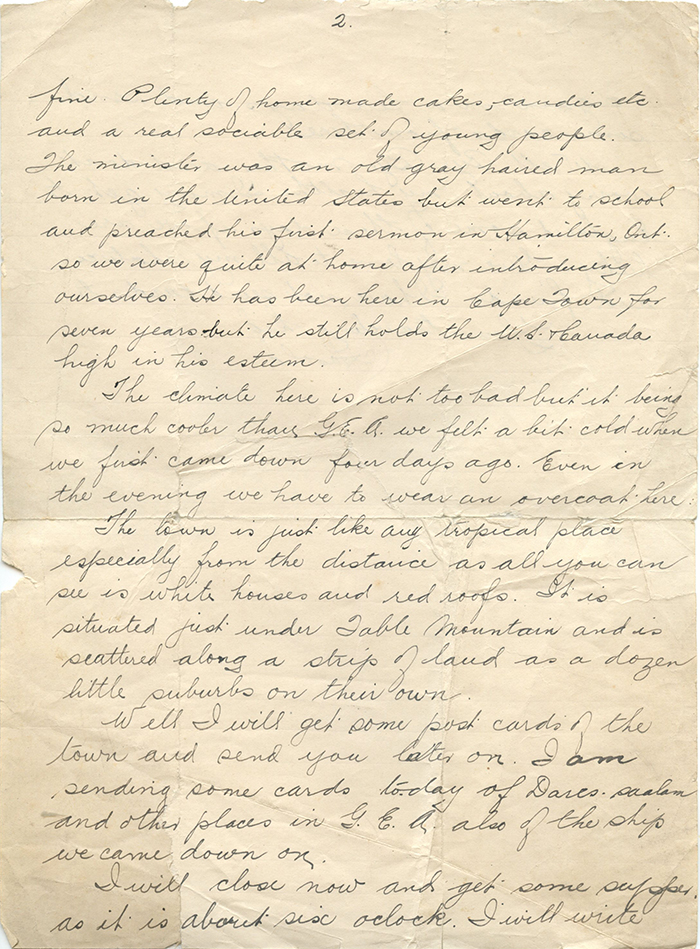 2.
fine. Plenty of home made cakes, candies etc.
and a real sociable set of young people.
The minister was an old gray haired man
born in the United States but went to school
and preached his first sermon in Hamilton, Ont.
so we were quite at home after introducing
ourselves. He has been here in Cape Town for
seven years but he still holds the U.S. + Canada
high in his esteem.
The climate here is not too bad but it being
so much cooler than G.E.A. we felt a bit cold when
we first came down four days ago. Even in
the evening we have to wear an overcoat here.
The town is just like any tropical place
especially from the distance as all you can
see is white houses and red roofs. It is
situated just under Table Mountain and is
scattered along a strip of land as a dozen
little suburbs on their own.
Well I will get some post cards of the
town and send you later on. I am
sending some cards today of Dares-saalam
and other places in G.E.A. also of the ship
we came down on.
I will close now and get some supper.
as it is about six oclock. I will write